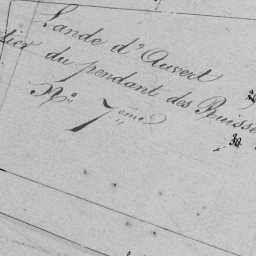 Lande d'Auvert
tier du pendant des Ruisse
N.º 7ème